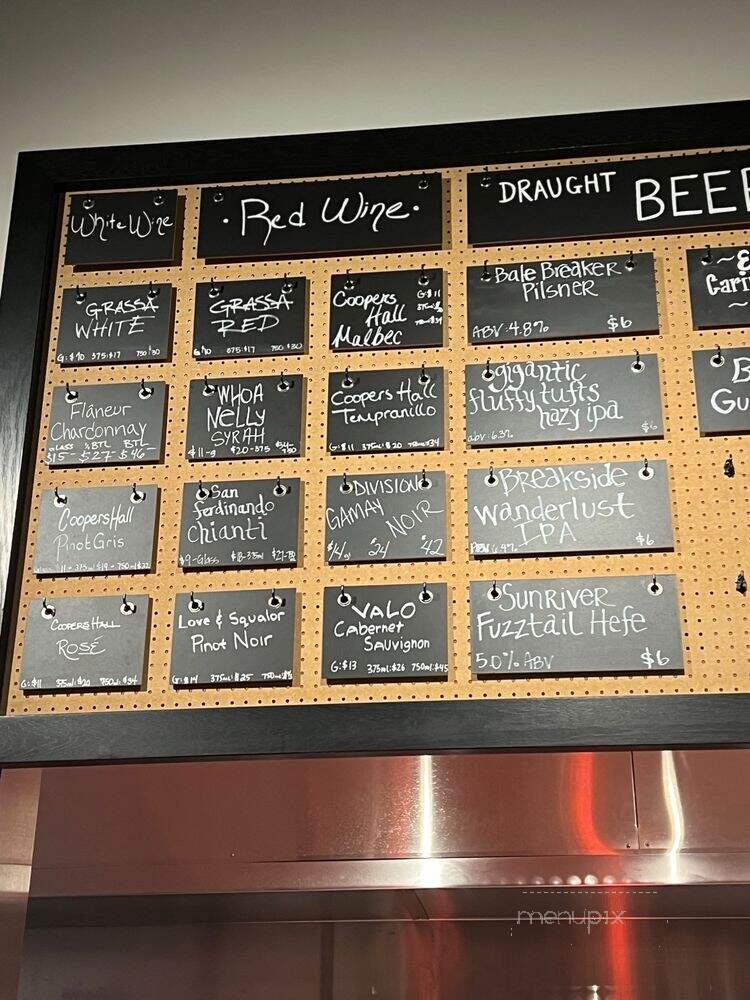 White Wine
• Red Wine •
DRAUGHT BEE
GRASSA
WHITE
G: $10 375:$17 750:$30
GRASSA
RED
375:$17 750:$30
Coopers
Hall
Malbec
G:$11
Bale Breaker
Pilsner
ABV: 4.8% $6
Flâneur
Chardonnay
GLASS ½ BTL BTL
$15- $27- $46-
WHOA
NELLY
SYRAH
$11-g $20-375
750
Coopers Hall
Tempranillo
G:$11 375ml:$20 750ml:$34
gigantic
fluffy tufts
hazy ipa
abv: 6.3% $6
Gu
Coopers Hall
Pinot Gris
San
ferdinando
Chianti
$9-Glass $18-375ml
DIVISION
GAMAY NOIR
24 42
Breakside
wanderlust
IPA
$6
COOPERS HALL
ROSÉ
G:$11 375ml:$20 750ml:$34
Love & Squalor
Pinot Noir
G:$14 375ml:$25
VALO
Cabernet
Sauvignon
G:$13 375ml:$26 750ml:$45
SUNRIVER
Fuzztail Hefe
5.0% ABV $6
menupix